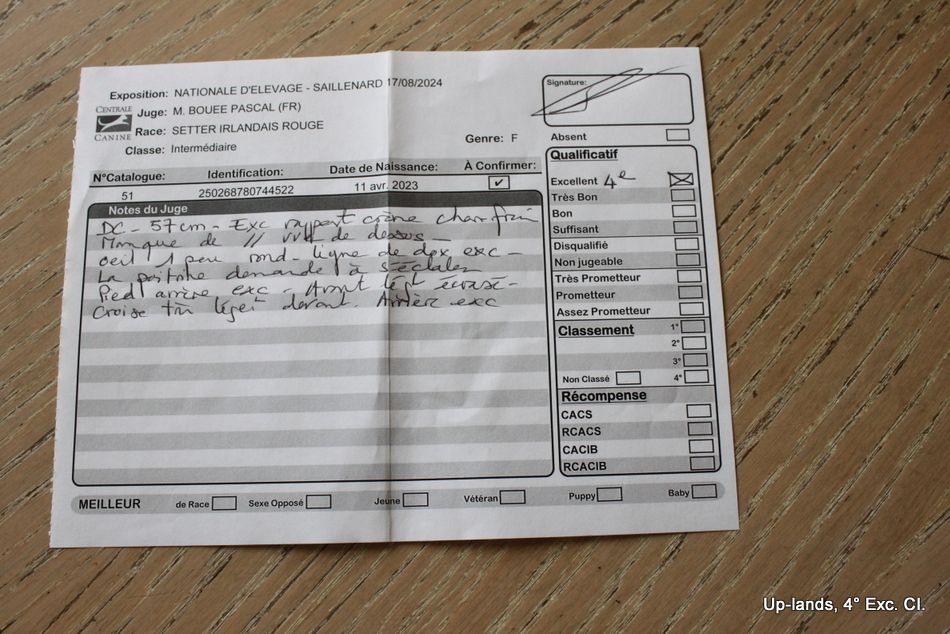 Exposition: NATIONALE D'ELEVAGE - SAILLENARD 17/08/2024
CENTRALE CANINE
Juge: M. BOUEE PASCAL (FR)
Race: SETTER IRLANDAIS ROUGE
Classe: Intermédiaire
Genre: F
Signature:
N°Catalogue: Identification: Date de Naissance: À Confirmer:
51 250268780744522 11 avr. 2023 ✓
Notes du Juge
DC - 57cm - Exc rapport crâne chanfrein
Manque de // de dessus -
Oeil 1 peu rond - ligne de dos exc -
La poitrine demande à s'éclater
Pied arrière exc - Avant légt écrasé -
Croise très léger devant. Arrière exc
Absent
Qualificatif
Excellent 4e
Très Bon
Bon
Suffisant
Disqualifié
Non jugeable
Très Prometteur
Prometteur
Assez Prometteur
Classement
1°
2°
3°
Non Classé 4°
Récompense
CACS
RCACS
CACIB
RCACIB
MEILLEUR de Race Sexe Opposé Jeune Vétéran Puppy Baby
Up-lands, 4° Exc. CI.